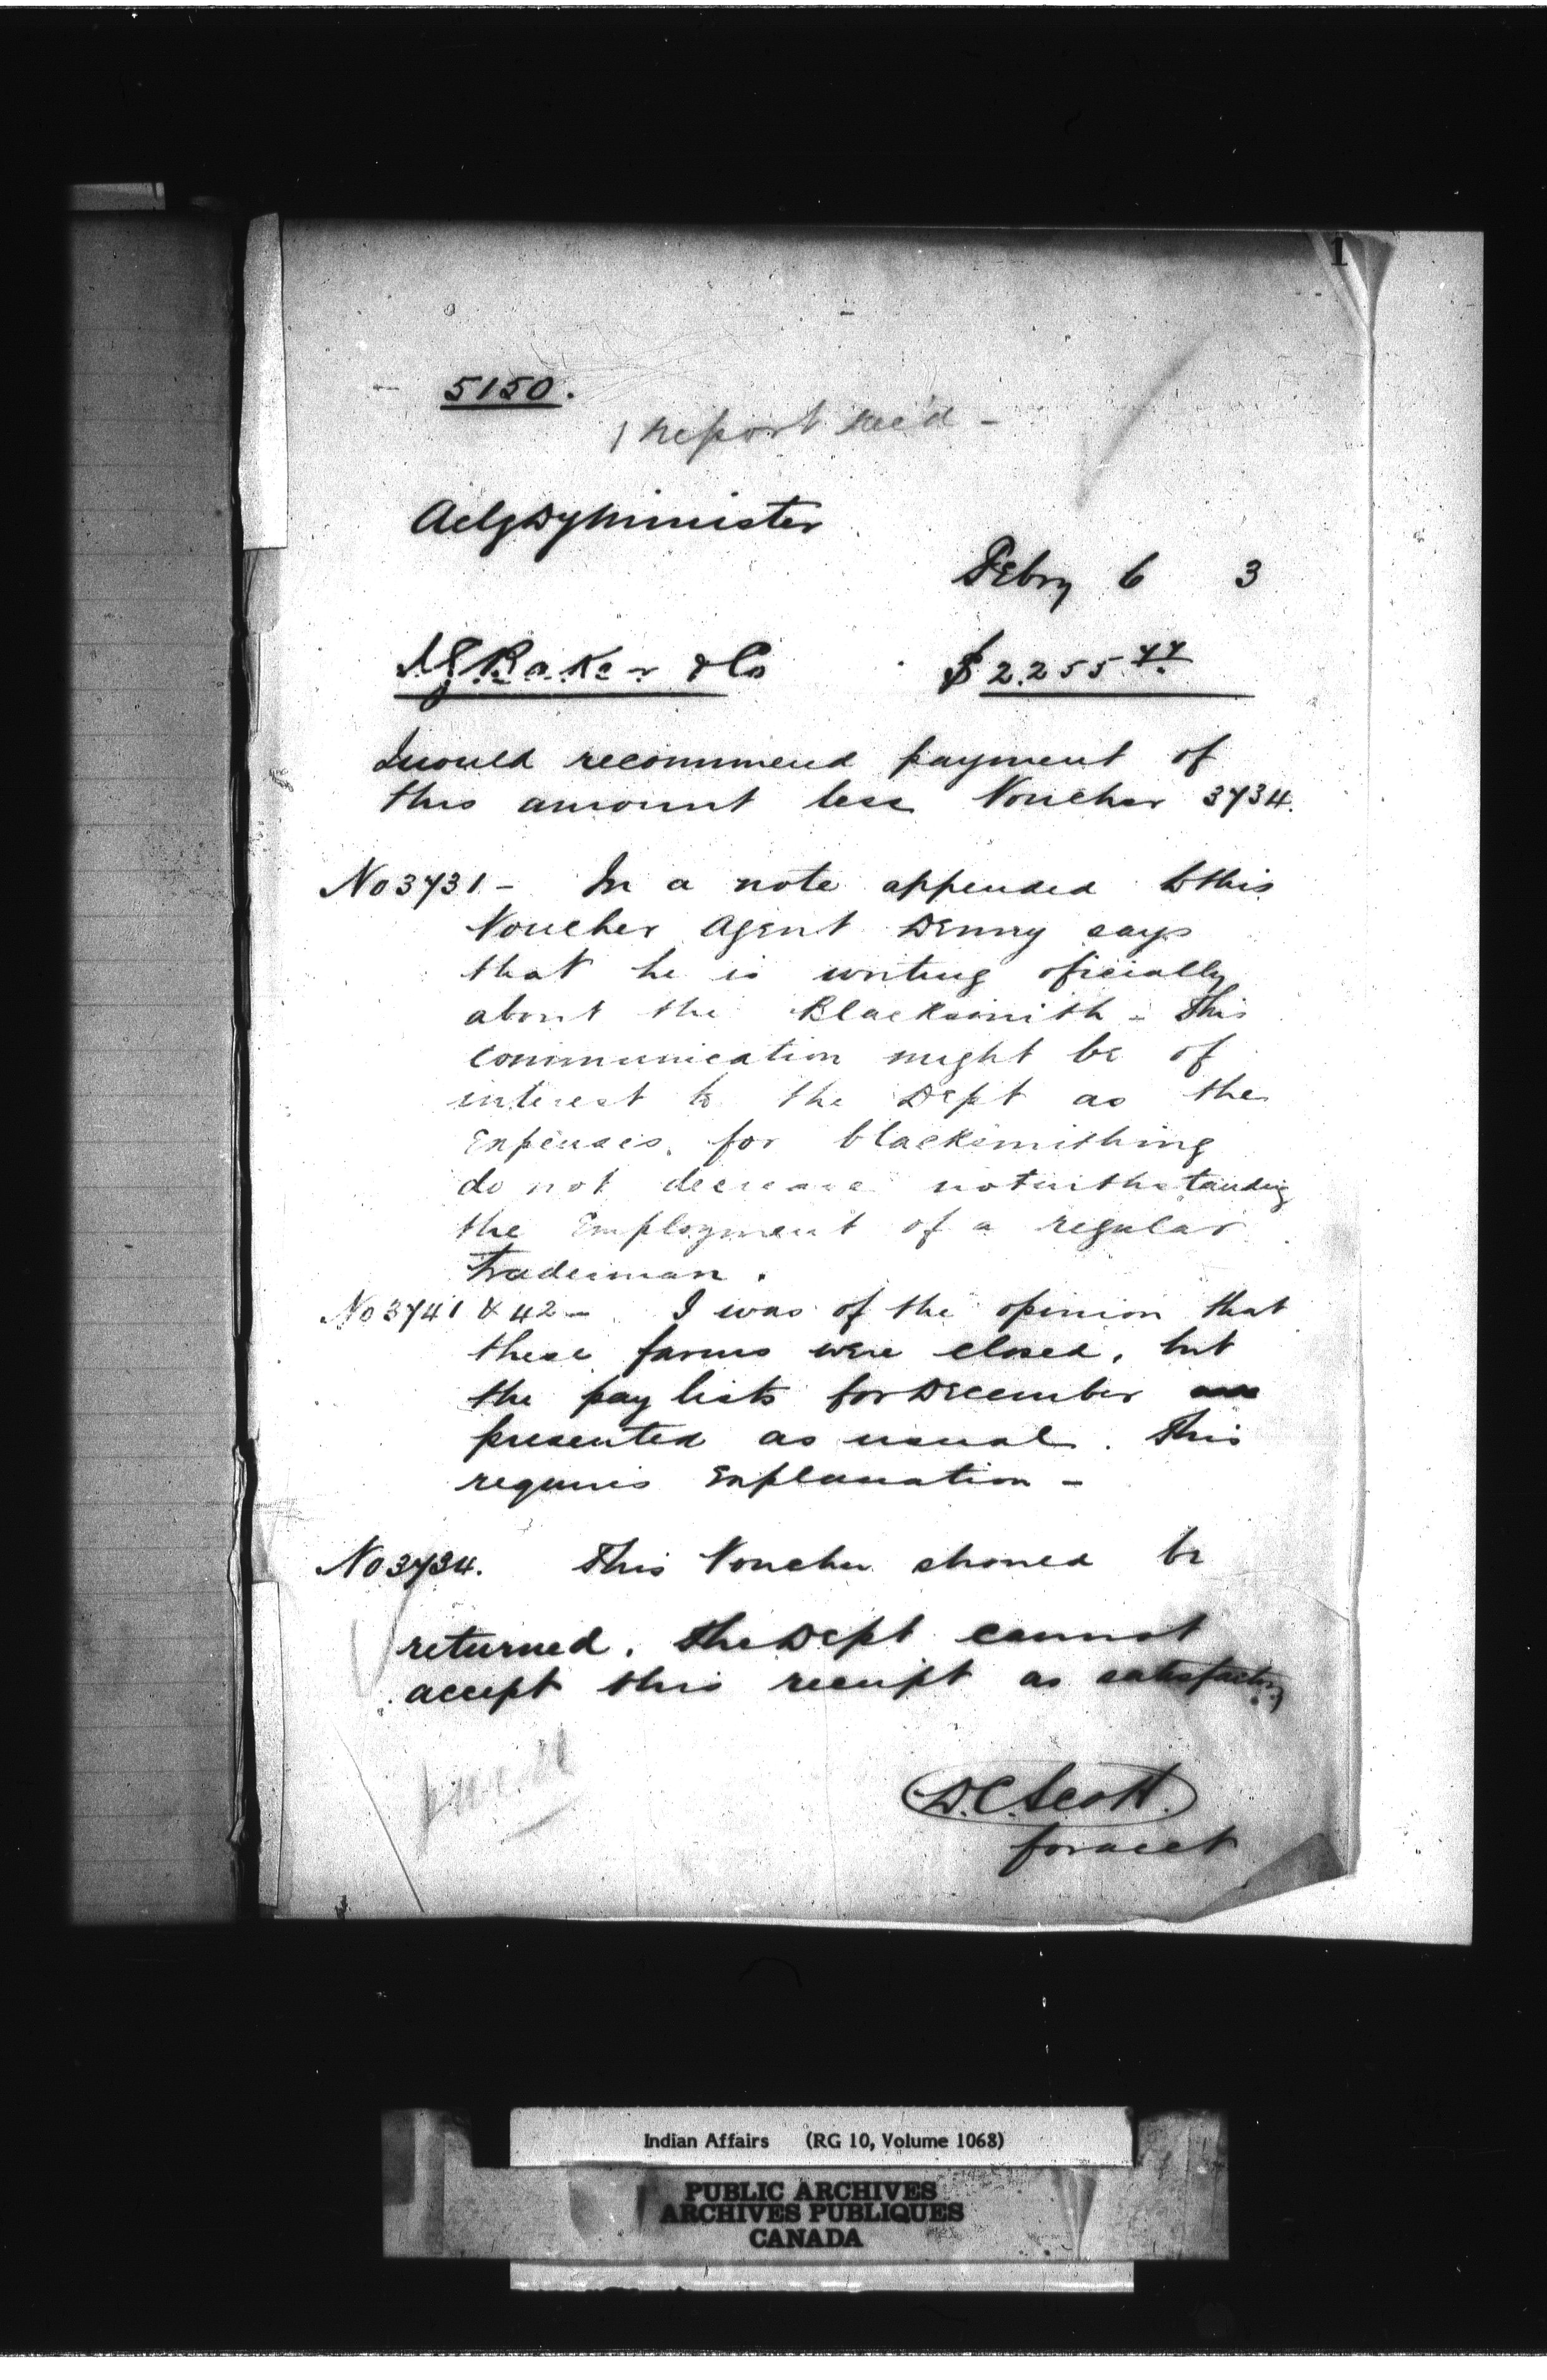 1
5150.
1 Report Rec'd -
Actg Dy Minister
Febry 6 3
I.G. Baker & Co $2255 77
I would recommend payment of
this amount less Voucher 3734.
No 3731 - In a note appended to this
Voucher Agent Denny says
that he is writing oficially
about the Blacksmith - This
communication might be of
interest to the Dept as the
Expenses for blacksmithing
do not decrease notwithstanding
the Employment of a regular
Tradesman.
No 3741 & 42 - I was of the opinion that
these farms were closed, but
the pay lists for December
presented as usual. This
requires Explanation -
No 3734. This Voucher should be
returned. The Dept cannot
accept this receipt as satisfactory
D.C. Scott.
for acct
Indian Affairs (RG 10, Volume 1068)
PUBLIC ARCHIVES
ARCHIVES PUBLIQUES
CANADA